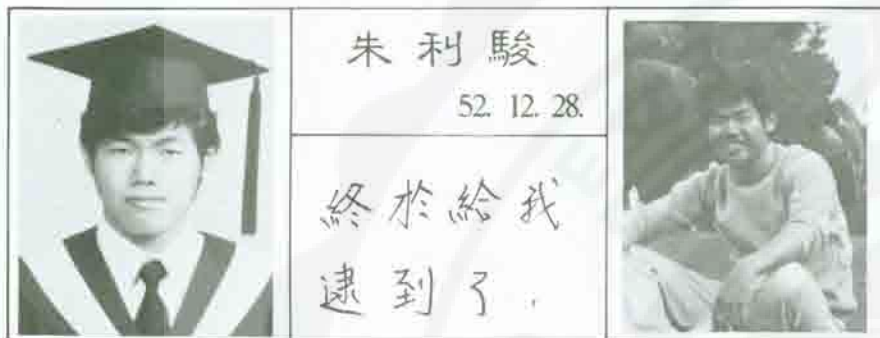 朱利駿
52. 12. 28.
終於給我
逮到了.